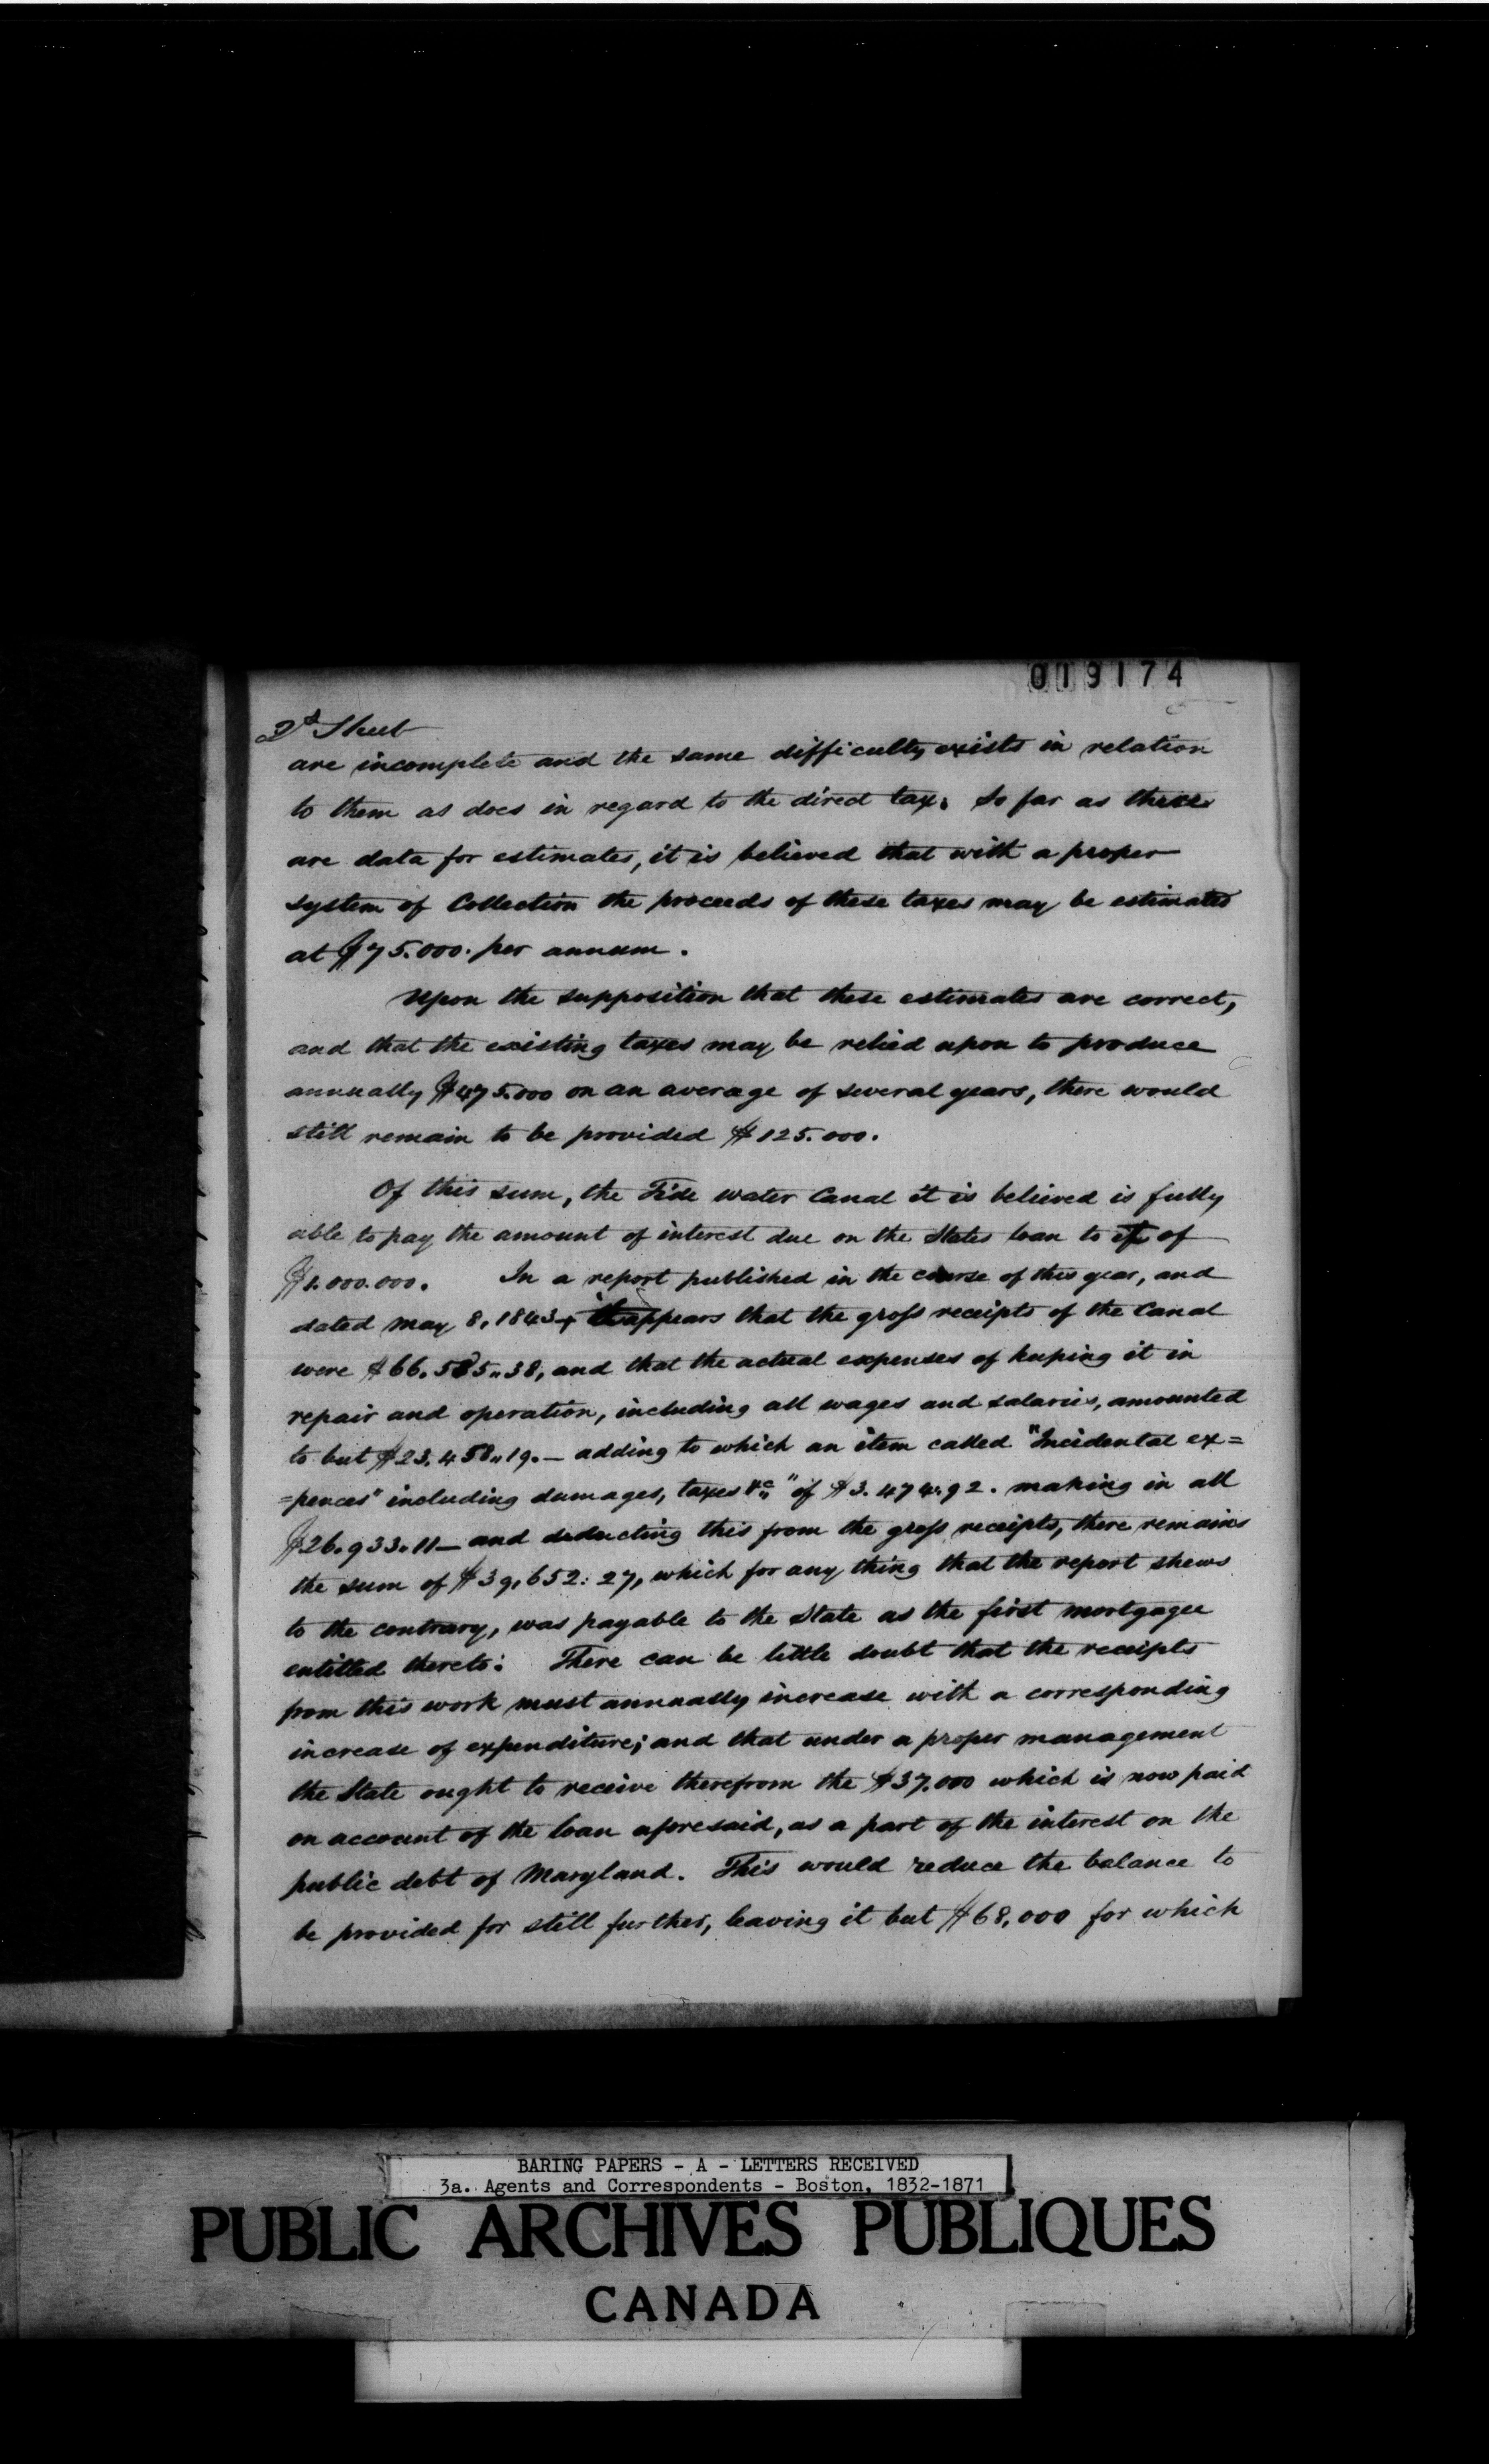 019174
2d Sheet
are incomplete and the same difficulty exists in relation
to them as does in regard to the direct tax. So far as there
are data for estimates, it is believed that with a proper
system of Collection the proceeds of these taxes may be estimated
at $75.000. per annum.
Upon the supposition that these estimates are correct,
and that the existing taxes may be relied upon to produce
annually $475.000 on an average of several years, there would
still remain to be provided $125.000.
Of this sum, the Tide water Canal it is believed is fully
able to pay the amount of interest due on the States loan to it of
$1.000.000. In a report published in the course of this year, and
dated May 8, 1843, it appears that the gross receipts of the Canal
were $66.585.38, and that the actual expenses of keeping it in
repair and operation, including all wages and salaries, amounted
to but $23.458.19.— adding to which an item called "Incidental ex=
=pences" including damages, taxes &c" of $3.474.92. making in all
$26.933.11— and deducting this from the gross receipts, there remains
the sum of $39,652:27, which for any thing that the report shews
to the contrary, was payable to the State as the first mortgagee
entitled thereto: There can be little doubt that the receipts
from this work must annually increase with a corresponding
increase of expenditure; and that under a proper management
the State ought to receive therefrom the $37.000 which is now paid
on account of the loan aforesaid, as a part of the interest on the
public debt of Maryland. This would reduce the balance to
be provided for still further, leaving it but $68,000 for which
BARING PAPERS - A - LETTERS RECEIVED
3a. Agents and Correspondents - Boston, 1832-1871
PUBLIC ARCHIVES PUBLIQUES
CANADA